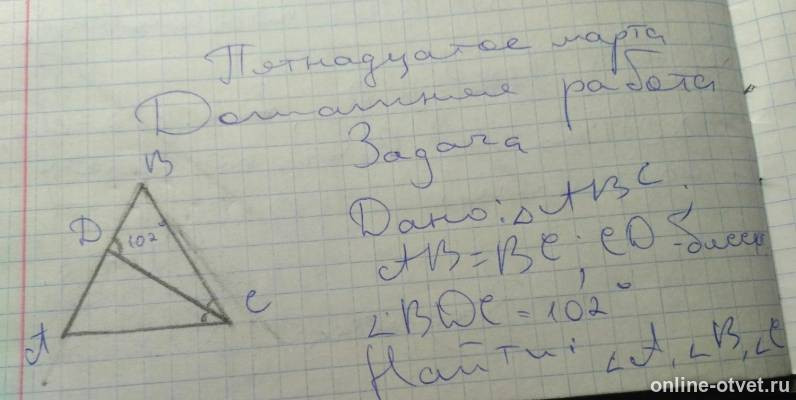 Пятнадцатое марта
Домашняя работа
Задача
B
Дано: △ABC.
D 102°
AB = BC; CD -бисс
C
∠BDC = 102°
A
Найти: ∠A, ∠B, ∠C
online-otvet.ru